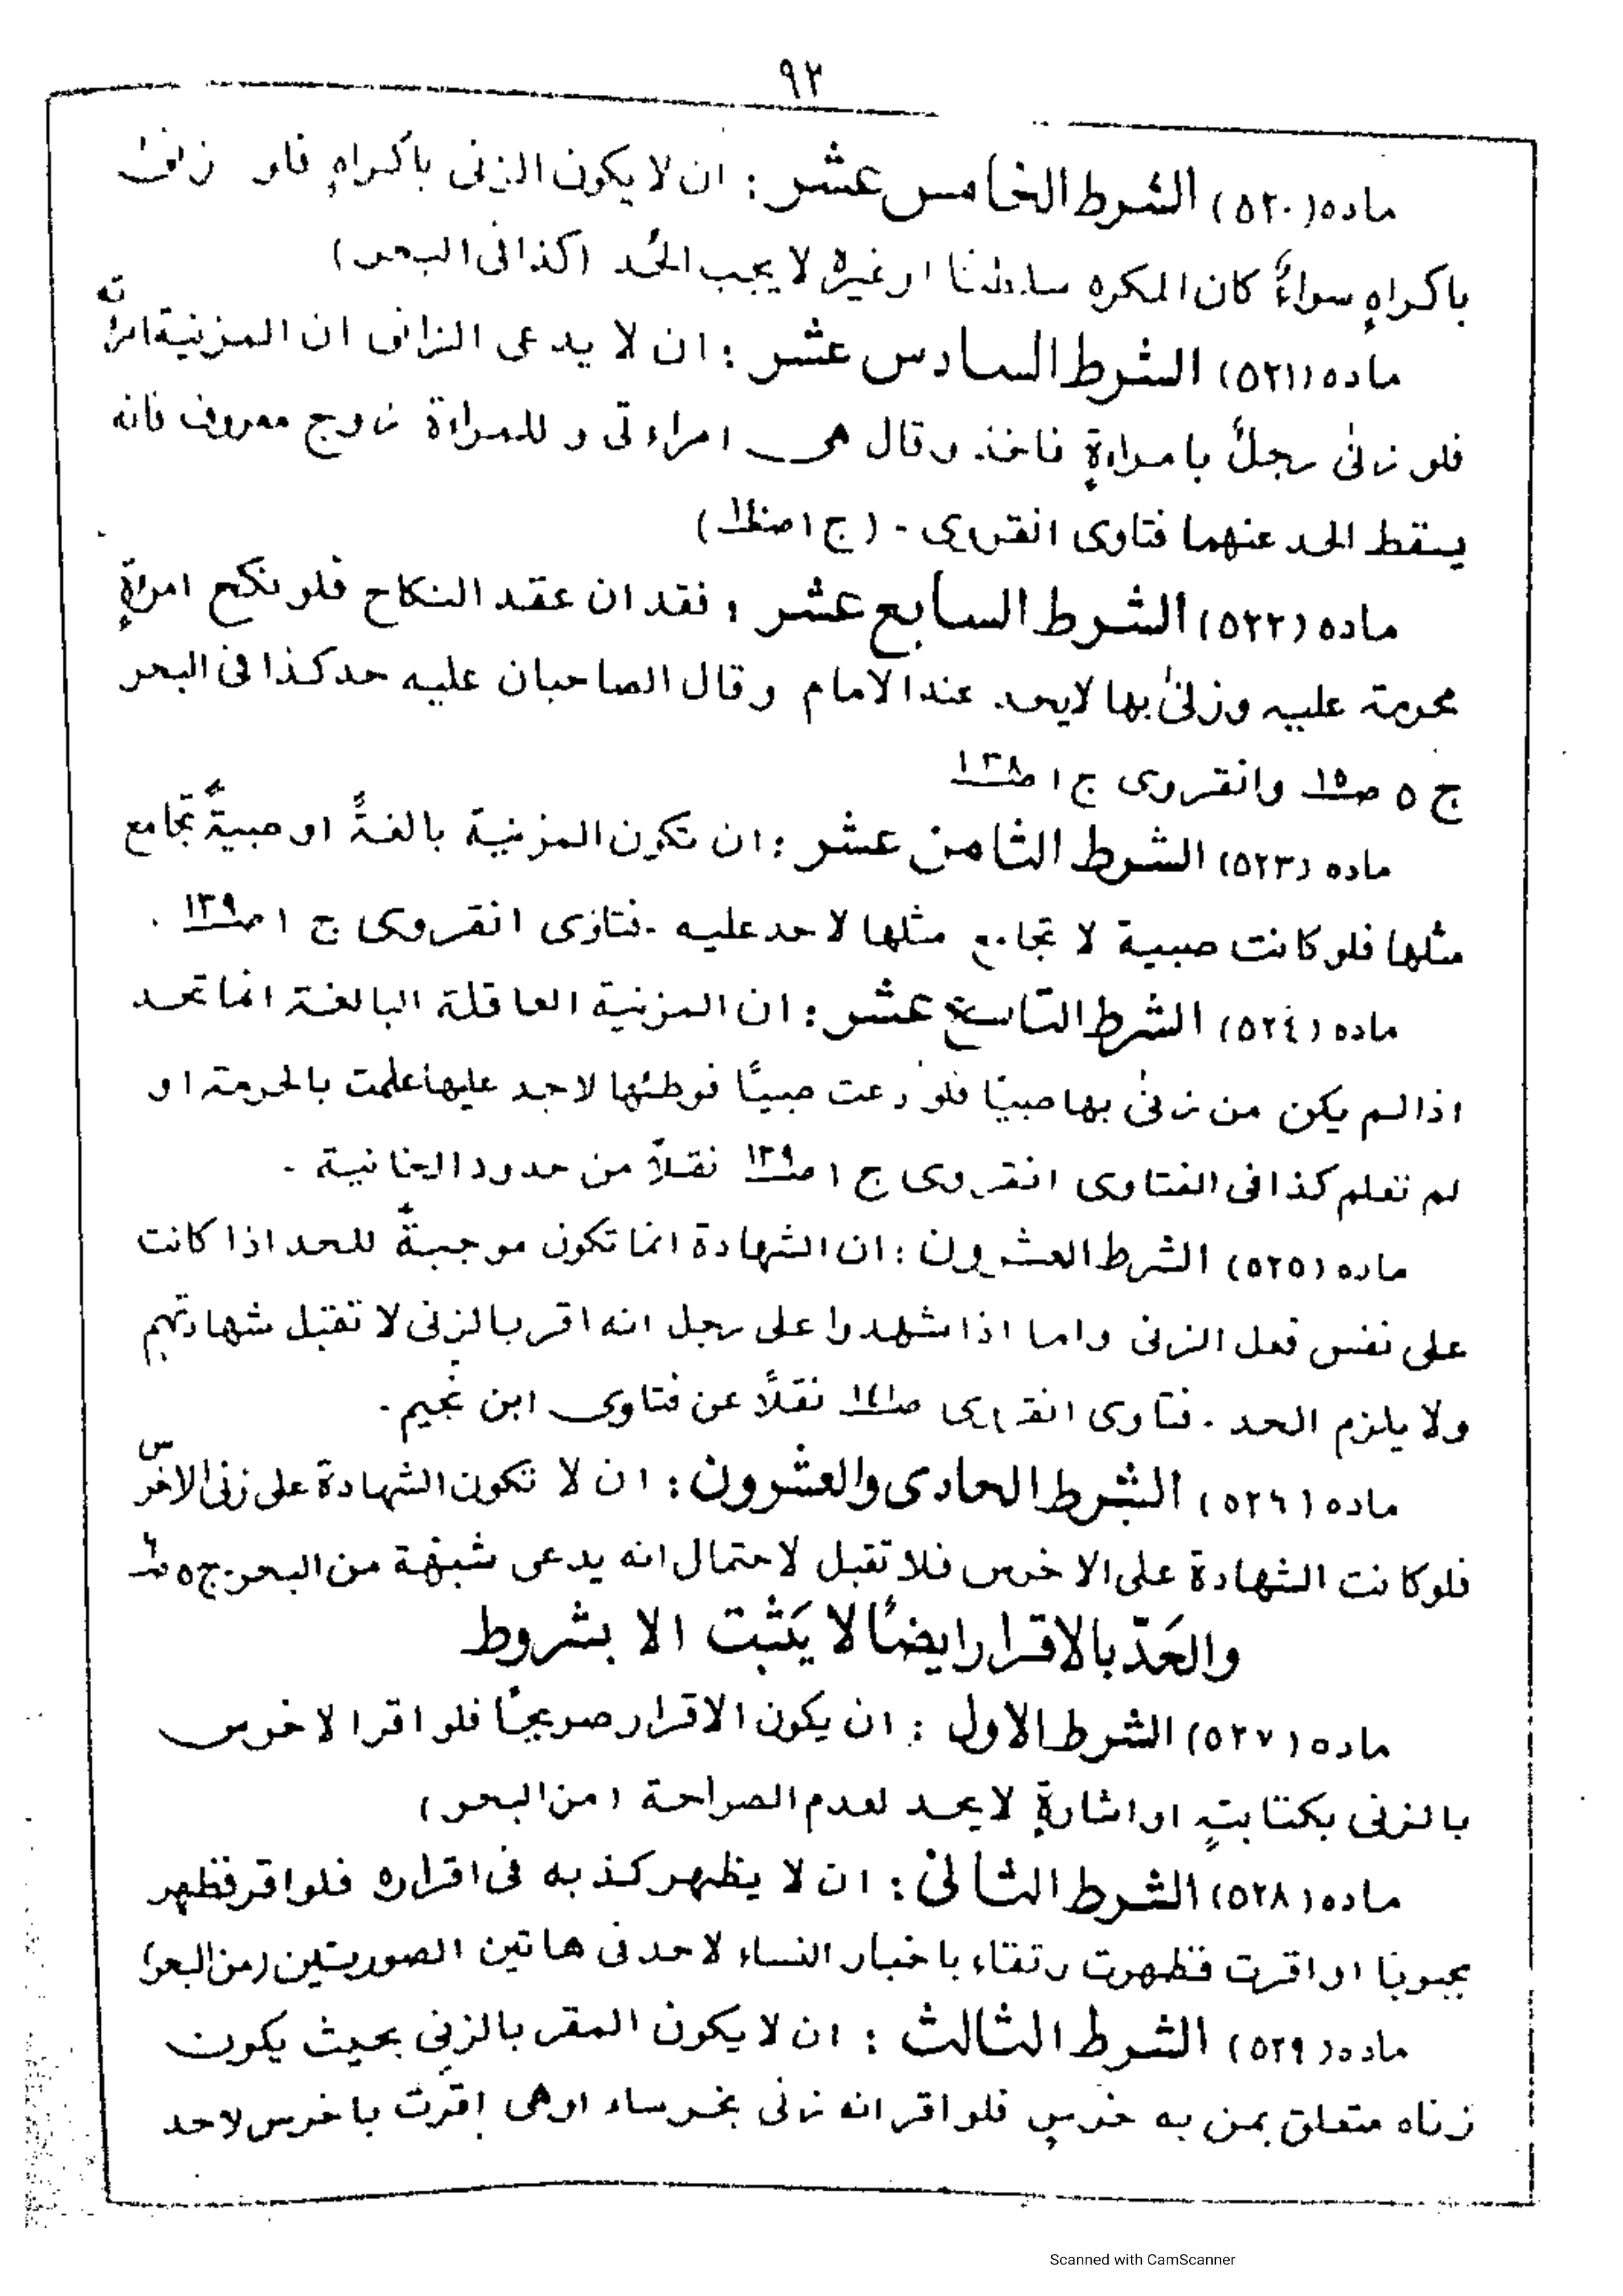 ٩٢
ماده (٥٢٠) الشرط الخامس عشر : ان لا يكون الزنى باكراهٍ فلو زنىٰ
باكراهٍ سواءً كان المكره سلطنا او غيره لا يجب الحُد (كذا فى البحر)
ماده (٥٢١) الشرط السادس عشر : ان لا يدعى الزانى ان المزنية امرأته
فلو زنىٰ رجلٌ بامراءةٍ فاخذ وقال هى امراءتى و للمراءة زوج معروف فانه
يسقط الحد عنهما فتاوى انقروى - (ج ١ ص)
ماده (٥٢٢) الشرط السابع عشر : فقدان عقد النكاح فلو نكح امراةٍ
محرمة عليه وزنىٰ بها لا يحد عند الامام وقال الصاحبان عليه حد كذا فى البحر
ج ٥ ص١٥ وانقروى ج ١ ص١٣٨
ماده (٥٢٣) الشرط الثامن عشر : ان تكون المزنية بالغةً او صبيةً تجامع
مثلها فلو كانت صبية لا تجامع مثلها لا حد عليه - فتاوى انقروى ج ١ ص١٣٩ .
ماده (٥٢٤) الشرط التاسع عشر : ان المزنية العاقلة البالغة انما تحد
اذا لم يكن من زنىٰ بها صبيًا فلو دعت صبيًا فوطئها لا حد عليها علمت بالحرمة او
لم تعلم كذا فى الفتاوى انقروى ج ١ ص١٣٩ نقلاً من حدود الخانية -
ماده (٥٢٥) الشرط العشرون : ان الشهادة انما تكون موجبةً للحد اذا كانت
على نفس فعل الزنى واما اذا شهدوا على رجل انه اقر بالزنى لا تقبل شهادتهم
ولا يلزم الحد - فتاوى انقروى ص١٤١ نقلاً عن فتاوى ابن نجيم -
ماده (٥٢٦) الشرط الحادى والعشرون : ان لا تكون الشهادة على زنى الاخرس
فلو كانت الشهادة على الاخرس فلا تقبل لاحتمال انه يدعى شبهة من البحر ج ٥ ص
والحَدّ بالاقرار ايضًا لا يَثبت الا بشروط
ماده (٥٢٧) الشرط الاول : ان يكون الاقرار صريحًا فلو اقر الاخرس
بالزنى بكتابتٍ او اشارةٍ لا يحد لعدم الصراحة (من البحر)
ماده (٥٢٨) الشرط الثانىٰ : ان لا يظهر كذبه فى اقراره فلو اقر فظهر
مجبوبًا او اقرت فظهرت رتقاء باخبار النساء لا حد فى هاتين الصورتين (من البحر)
ماده (٥٢٩) الشرط الثالث : ان لا يكون المقر بالزنى بحيث يكون
زناه متعلق بمن به خرسٍ فلو اقر انه زنى بخرساء او هى اقرت باخرس لا حد
Scanned with CamScanner